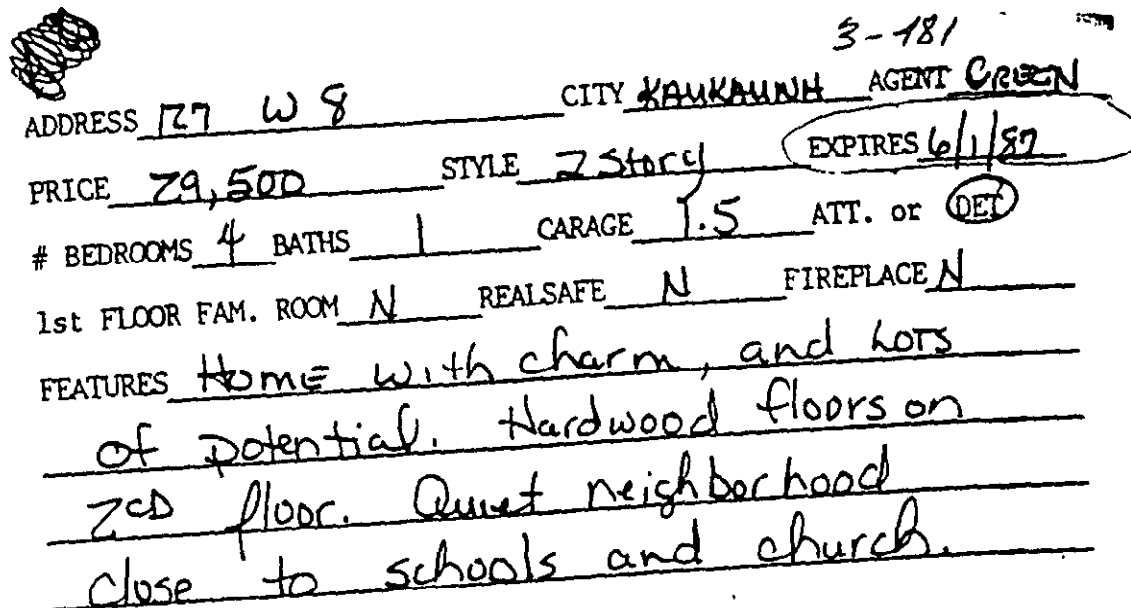 3-181
ADDRESS 127 W 8 CITY KAUKAUNA AGENT GREEN
PRICE 29,500 STYLE 2 Story EXPIRES 6/1/87
# BEDROOMS 4 BATHS 1 CARAGE 1.5 ATT. or DET
1st FLOOR FAM. ROOM N REALSAFE N FIREPLACE N
FEATURES Home with charm, and LOTS
of potential. Hardwood floors on
2cD floor. Quiet neighborhood
close to schools and church.